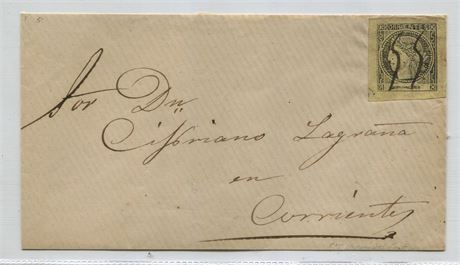 CORRIENTES
Sor Dn
Cipriano Lagraña
en
Corrientes